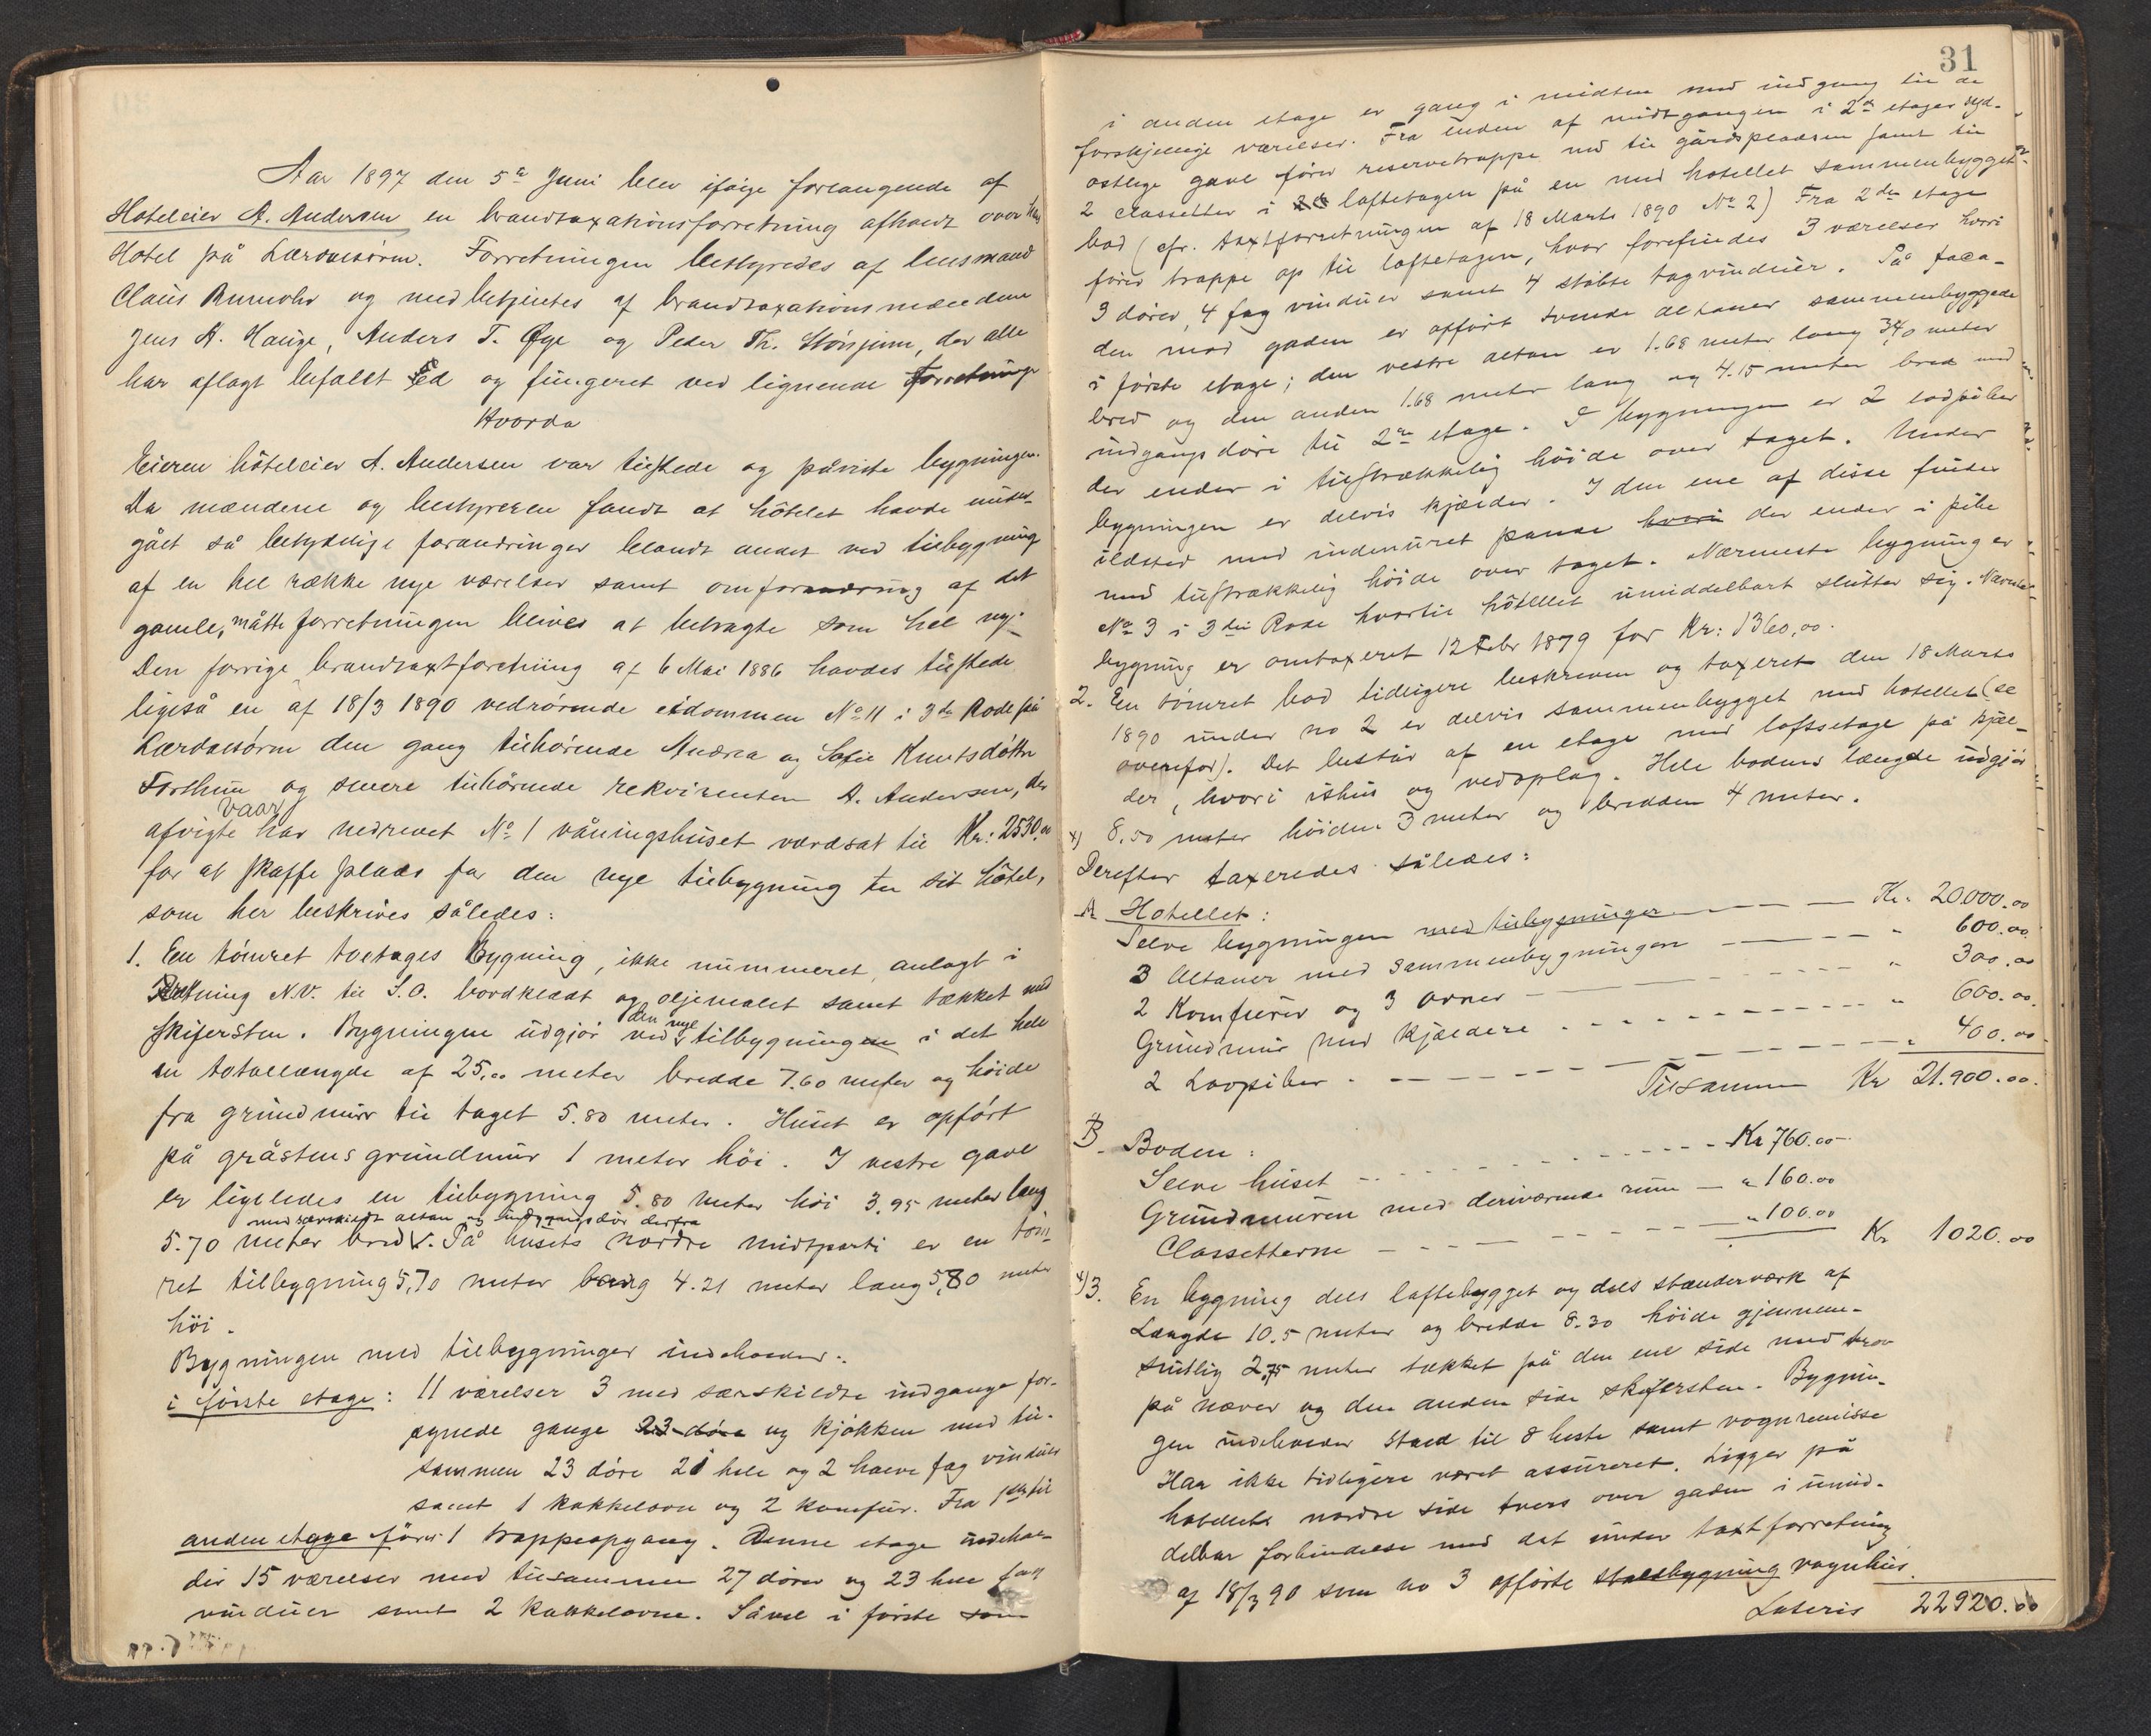 Aar 1897 den 5te Juni blev ifølge forlangende af
Hoteleier A. Andersen en brandtaxationsforretning afholdt over hans
Hotel på Lærdalsøren. Forretningen bestyredes af lensmand
Claus Rumohr og medbetjentes af brandtaxationsmændene
Jens A. Hauge, Anders T. Øye og Peder Th. Stønjum, der alle
har aflagt befalet Ed og fungeret ved lignende forretninger
Hvorda
Eieren hôteleier A. Andersen var tilstede og påviste bygningen.
Da mændene og bestyreren fandt at hôtelet havde under-
gået så betydelige forandringer blandt andet ved tilbygning
af en hel række nye værelser samt omforandring af det
gamle, måtte forretningen blives at betragte som hel ny.
Den forrige brandtaxtforretning af 6 Mai 1886 havdes tilstede
ligeså en af 18/3 1890 vedrørende eidommen No 11 i 3die Rode på
Lærdalsøren den gang tilhørende Andrea og Sofie Knutsdøttre
Forthun og senere tilhørende rekvirenten A. Andersen, der
vaar
afvigte har nedrevet No 1 våningshuset værdsat til Kr: 2530.00
for at skaffe plads for den nye tilbygning til sit hôtel,
som her beskrives således:
1. En tømret toetages Bygning, ikke nummeret, anlagt i
Retning N.V. til S.O. bordklædt og oljemalet samt tækket med
den nye
skifersten. Bygningen udgjør ved tilbygningen i det hele
en totallængde af 25,00 meter bredde 7.60 meter og høide
fra grundmur til taget 5.80 meter. Huset er opført
på gråstens grundmur 1 meter høi. I vestre gavl
er ligeledes en tilbygning 5.80 meter høi 3.95 meter lang
med særskildt altan og indgangsdør derfra
5.70 meter bred. På husets nordre midtparti er en tøm-
ret tilbygning 5,70 meter 4.21 meter lang 5,80 meter
høi.
Bygningen med tilbygninger indeholder:
i første etage: 11 værelser 3 med særskildte indgange for-
synede gange 23 døre og kjøkken med til-
sammen 23 døre 21 hele og 2 halve fag vinduer
samt 1 kakkelovn og 2 komfur. Fra 1ste til
anden etage fører 1 trappeopgang. Denne etage indehol-
der 15 værelser med tilsammen 27 døre og 23 hele fag
vinduer samt 2 kakkelovne. Såvel i første som
31
i anden etage er gang i midten med indgang til de
forskjellige værelser. Fra enden af midtgangen i 2den etages syd-
ostlige gavl fører reservetrappe ned til gårdspladsen samt til
2 classetter i loftetagen på en med hotellet sammenbygget
bod (cfr. taxtforretningen af 18 Marts 1890 No 2) Fra 2den etage
fører trappe op til loftetagen, hvor forefindes 3 værelser hvori
3 dører, 4 fag vinduer samt 4 støbte tagvinduer. På faca-
den mod gaden er opført tvende altaner sammenbyggede
i første etage; den vestre altan er 1.68 meter lang 3,40 meter
bred og den anden 1.68 meter lang og 4.15 meter bred med
indgangsdøre til 2den etage. I bygningen er 2 lodpiber
der ender i tilstrækkelig høide over taget. Under
bygningen er delvis kjælder. I den ene af disse findes
ildsted med indmuret pande hvori der ender i pibe
med tilstrækkelig høide over taget. Nærmeste bygning er
No 3 i 3die Rode hvortil hôtellet umiddelbart slutter sig. Nævnte
bygning er omtaxeret 12 Febr 1879 for Kr: 1360,00.
2. En tømret bod tidligere beskreven og taxeret den 18 Marts
1890 under no 2 er delvis sammenbygget med hotellet (se
ovenfor). Det består af en etage med loftsetage på kjæl-
der, hvori ishus og vedoplag. Hele bodens længde udgjør
x) 8.50 meter høiden 3 meter og bredden 4 meter.
Derefter taxeredes således:
A Hotellet:
Selve bygningen med tilbygninger — Kr. 20000.00
3 Altaner med sammenbygningen — " 600.00
2 Komfurer og 3 ovner — " 300.00
Grundmur med kjældere — " 600.00.
2 Lovpiber — " 400.00.
Tilsammen Kr 21.900.00.
B Boden:
Selve huset — Kr 760.00
Grundmuren med deriværende rum — " 160.00
Classetterne — " 100.00
Kr 1020.00
x) 3. En bygning dels loftebygget og dels stænderværk af
Længde 10.5 meter og bredde 8.30 høide gjennem-
snitlig 2,75 meter tækket på den ene side med trov
på næver og den anden side skifersten. Bygnin-
gen indeholder stald til 8 heste samt vognremisse
Har ikke tidligere været assureret. Ligger på
hotellets nordre side tvers over gaden i umid-
delbar forbindelse med det under taxtforretning
af 18/3 90 som no 3 opførte staldbygning vognhus.
Lateris 22920.00